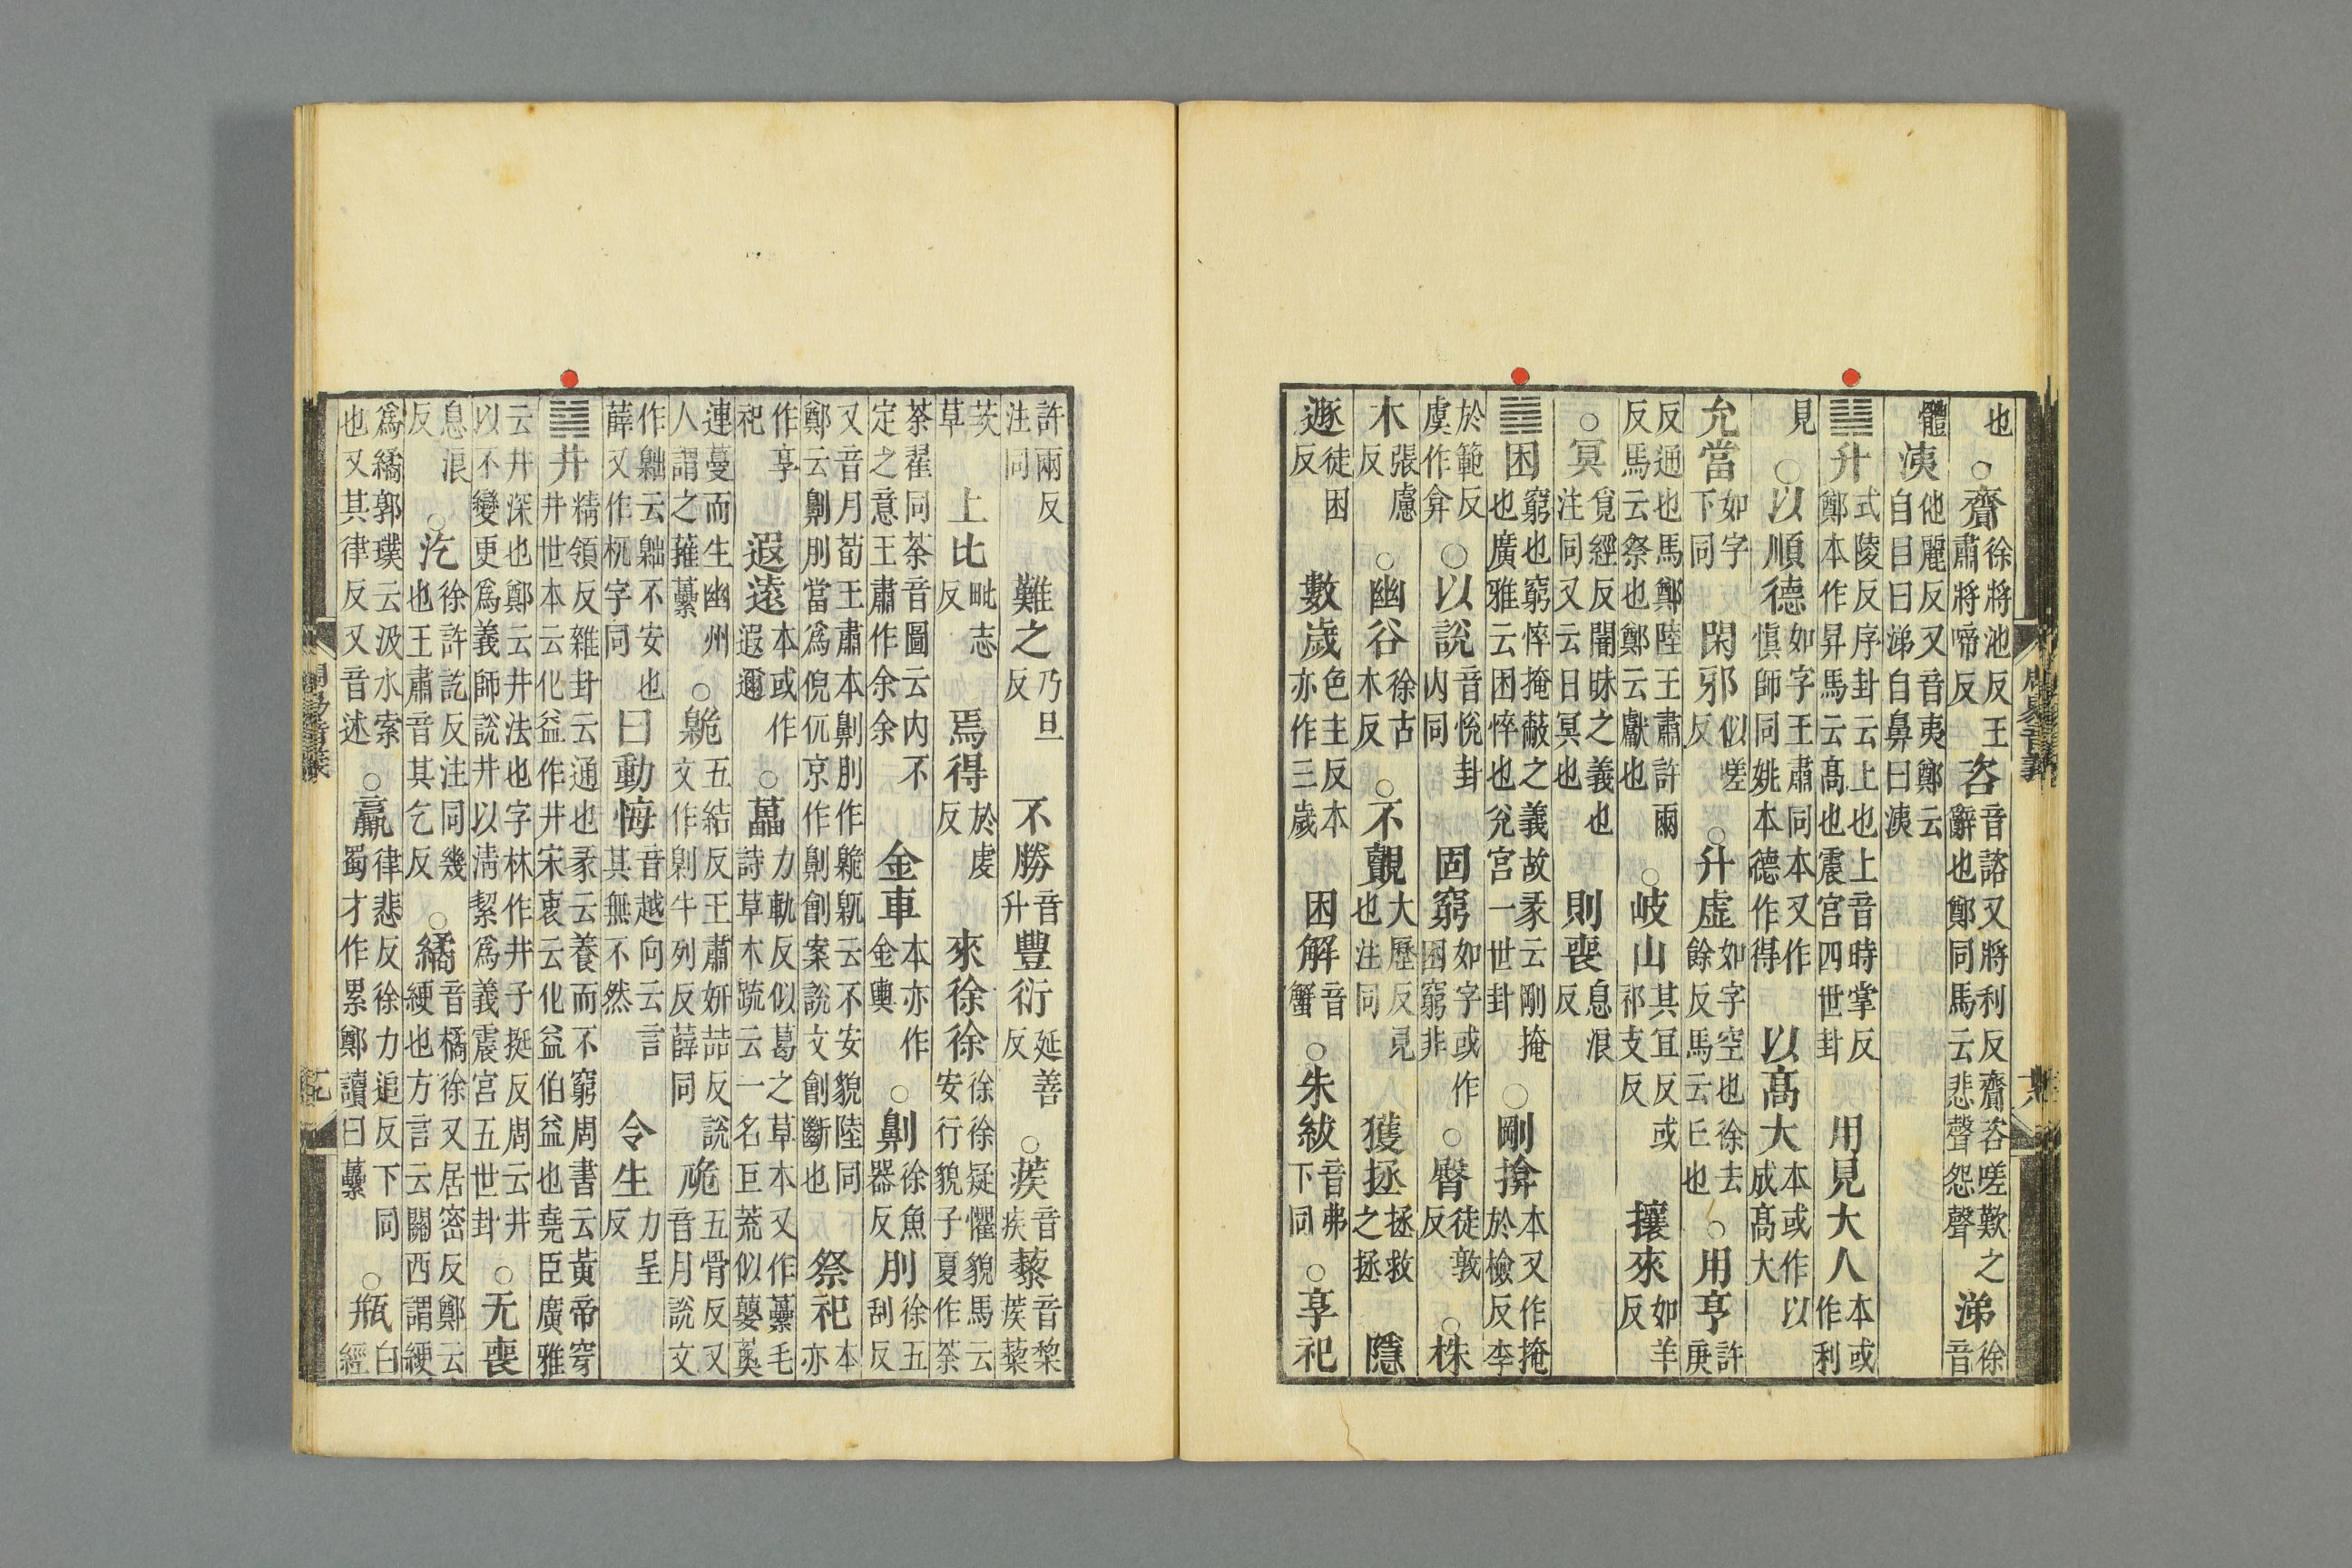 也○齎徐將池反王肅將啼反咨音諮又將利反齎咨嗟歎之辭也鄭同馬云悲聲怨聲涕徐音
體洟他麗反又音夷鄭云自目曰涕自鼻曰洟
䷭升式陵反序卦云上也上音時掌反鄭本作昇馬云髙也震宮四世卦用見大人本或作利
見○以順德如字王肅同本又作愼師同姚本德作得以髙大本或作以成髙大
允當如字下同閑邪似嗟反○升虛如字空也徐去餘反馬云丘也○用亨許庚
反通也馬鄭陸王肅許兩反馬云祭也鄭云獻也○岐山其宜反或祁支反攘來如羊反
○冥覓經反闇昧之義也注同又云日冥也則喪息浪反
䷮困窮也窮悴掩蔽之義故彖云剛掩也廣雅云困悴也兊宮一世卦○剛揜本又作掩於檢反李
於範反虞作弇○以說音悅卦内同固窮如字或作困窮非○臀徒敦反○株
木張慮反○幽谷徐古木反○不覿大歷反見也注同獲拯拯救之拯隱
遯徒困反數歲色主反本亦作三歲困解音蟹○朱紱音弗下同○享祀
周易音義
許兩反注同難之乃旦反不勝音升豐衍延善反○蒺音疾藜音黎蒺藜
茨草上比毗志反焉得於虔反來徐徐徐徐疑懼貌馬云安行貌子夏作荼
荼翟同荼音圖云内不定之意王肅作余余金車本亦作金輿○劓徐魚器反刖徐五刮反
又音月荀王肅本劓刖作臲云不安貌陸同鄭云劓刖當爲倪㐳京作劓劊案說文劊斷也祭祀本亦
作享祀遐遠本或作遐邇○藟力軌反似葛之草本又作虆毛詩草木疏云一名巨荒似蘡薁
連蔓而生幽州人謂之蓷虆○臲五結反王肅妍喆反說文作劓牛列反薛同五骨反又音月說文
作云不安也薛又作杌字同曰動悔音越向云言其無不然令生力呈反
䷯井精領反雜卦云通也彖云養而不窮周書云黃帝穿井世本云化益作井宋衷云化益伯益也堯臣廣雅
云井深也鄭云井法也字林作井子挺反周云井以不變更爲義師說井以淸絜爲義震宮五世卦○无喪
息浪反○汔徐許訖反注同幾也王肅音其乞反○繘音橘徐又居密反鄭云綆也方言云關西謂綆
爲繘郭璞云汲水索也又其律反又音述○羸律悲反徐力追反下同蜀才作累鄭讀曰虆○瓶白經